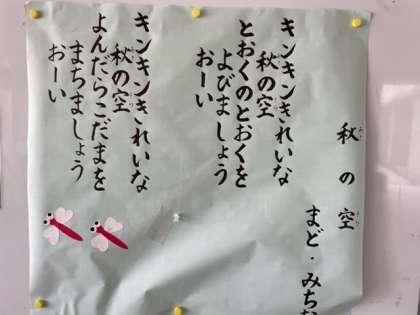 秋の空
まど・みち
キンキンきれいな
秋の空
とおくのとおくを
よびましょう
おーい
キンキンきれいな
秋の空
よんだらこだまを
まちましょう
おーい